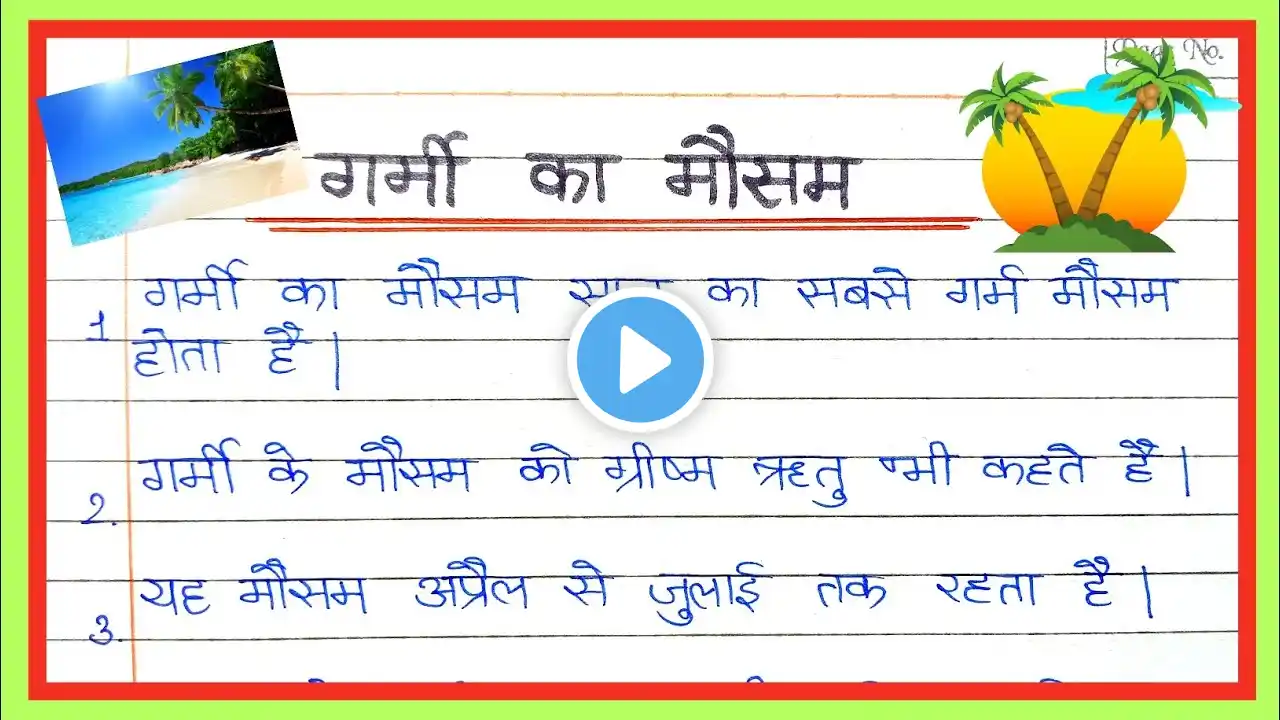 Page No.
गर्मी का मौसम
1 गर्मी का मौसम का सबसे गर्म मौसम
होता है|
2. गर्मी के मौसम को ग्रीष्म ऋतु भी कहते है|
3. यह मौसम अप्रैल से जुलाई तक रहता है|